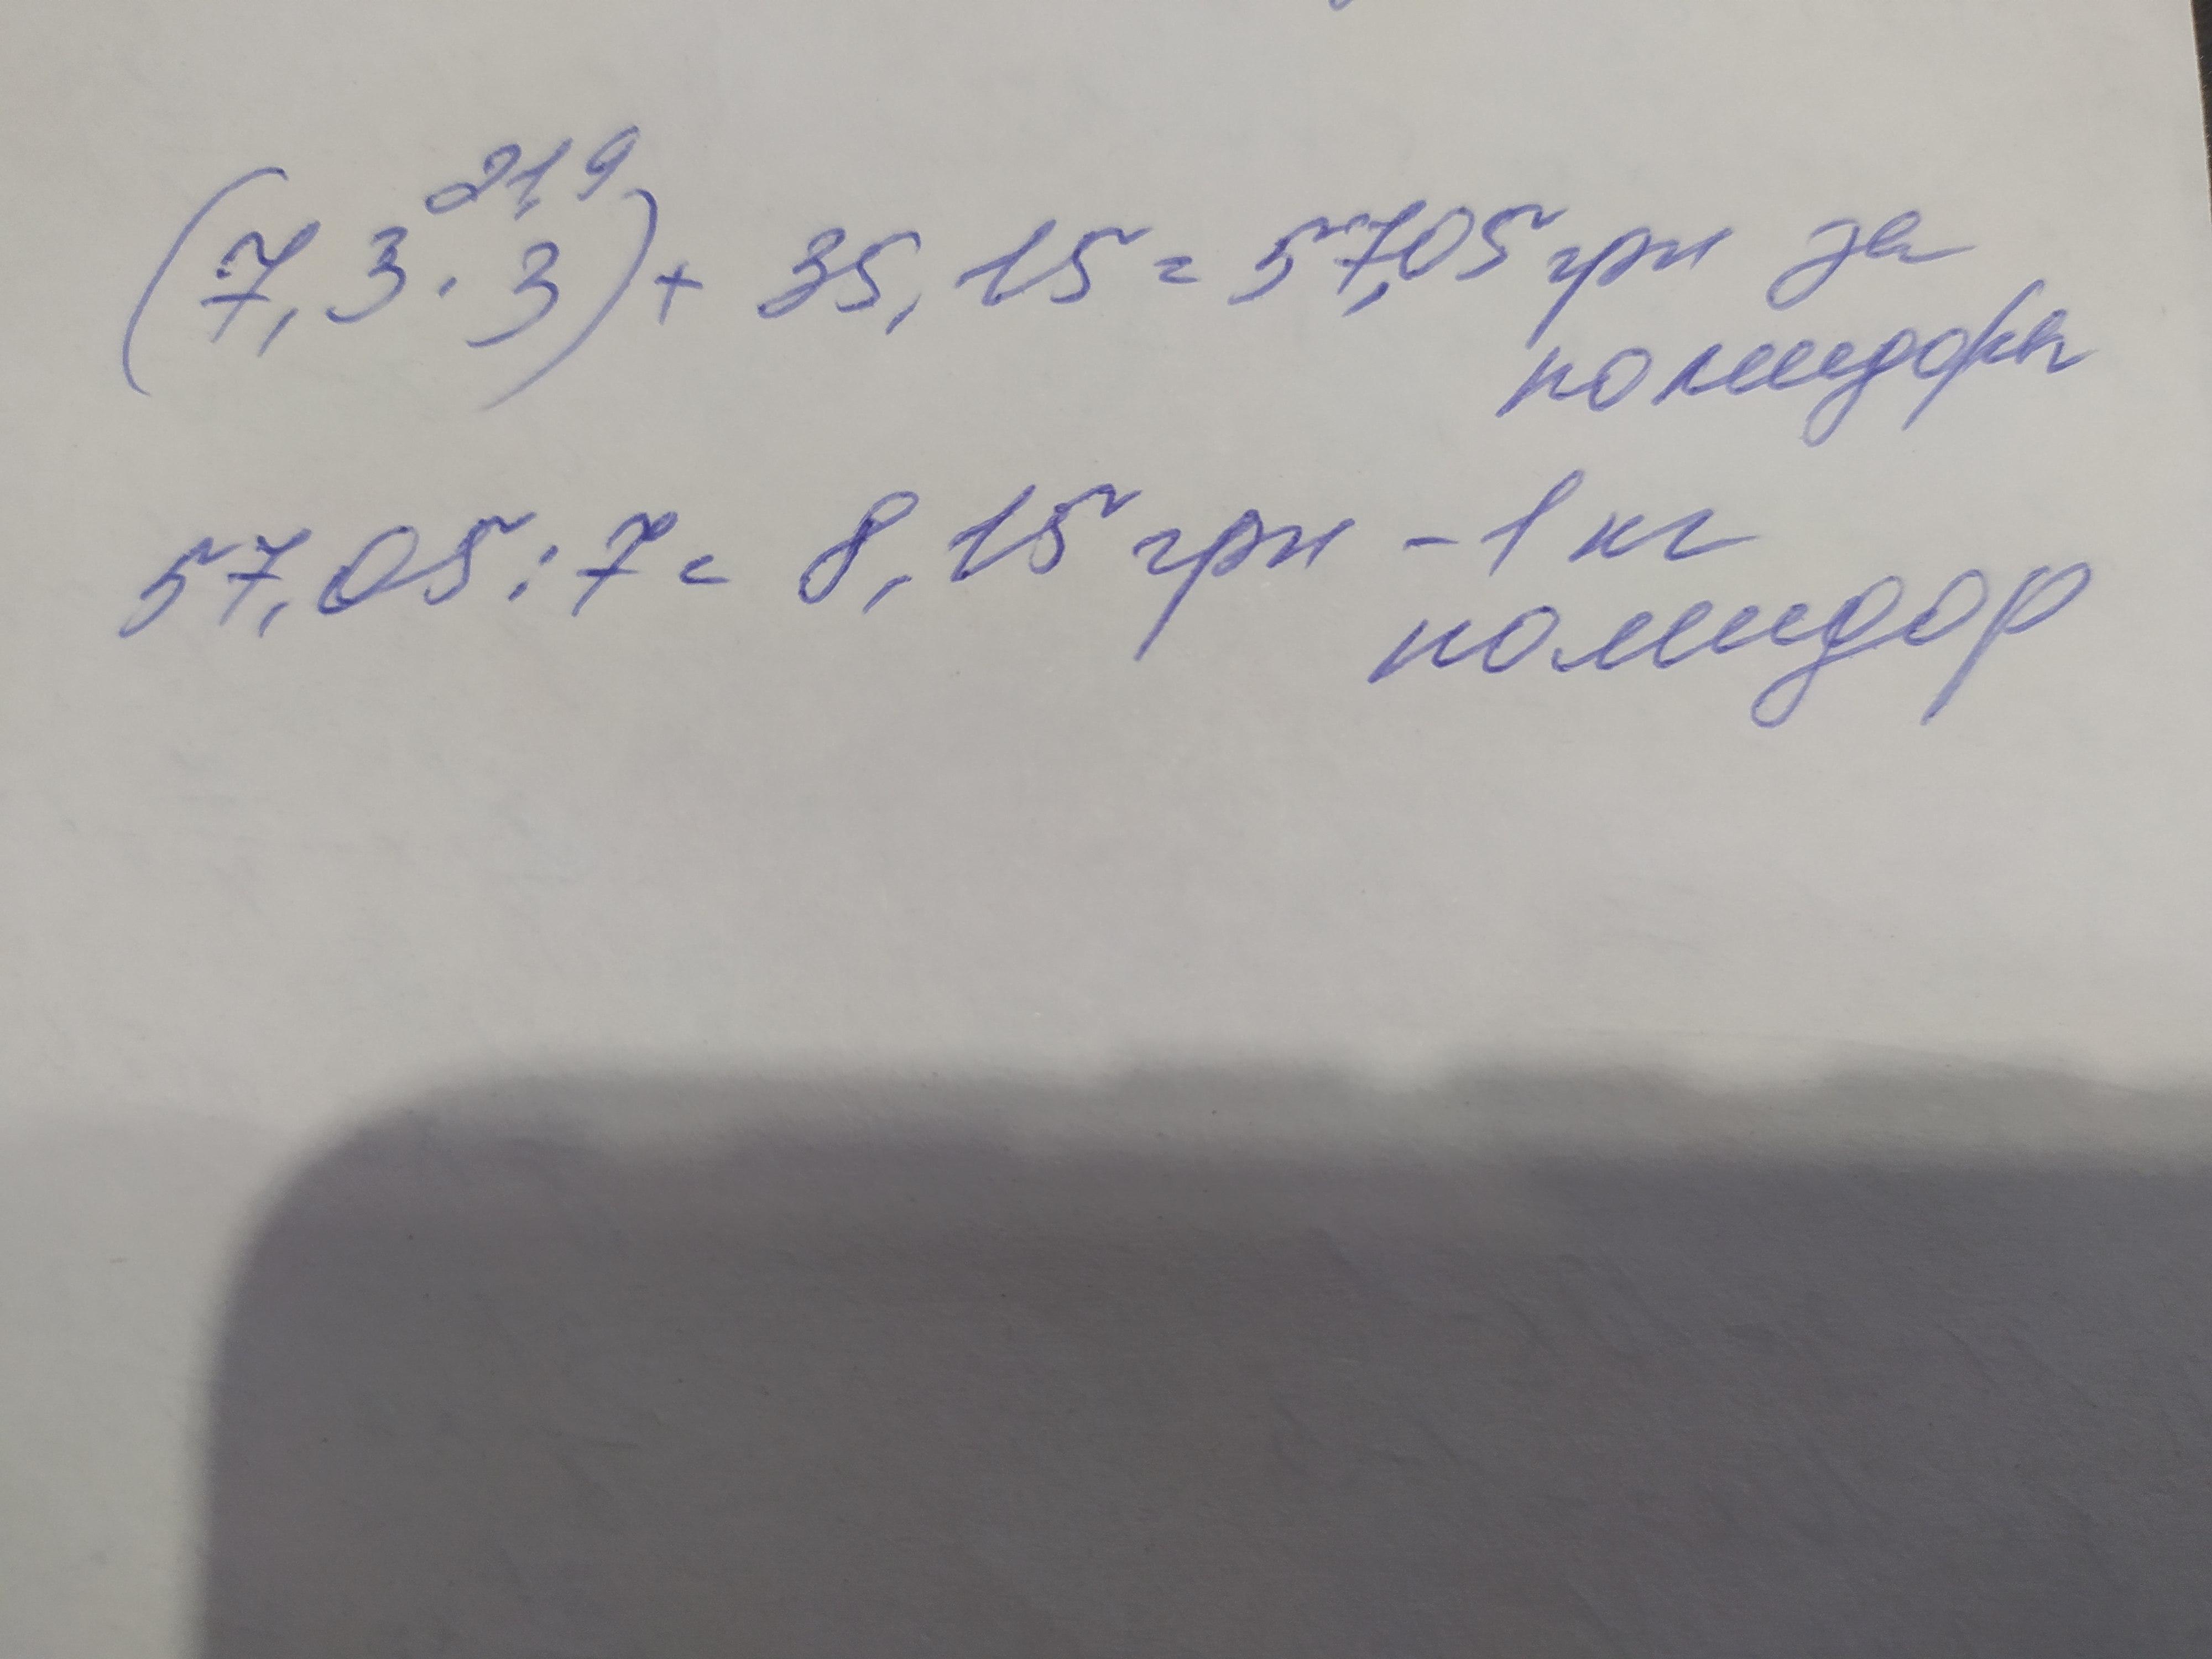 21,9
(7,3·3)+ 35,15=57,05грн за
помидоры
57,05:7= 8,15грн -1кг
помидор